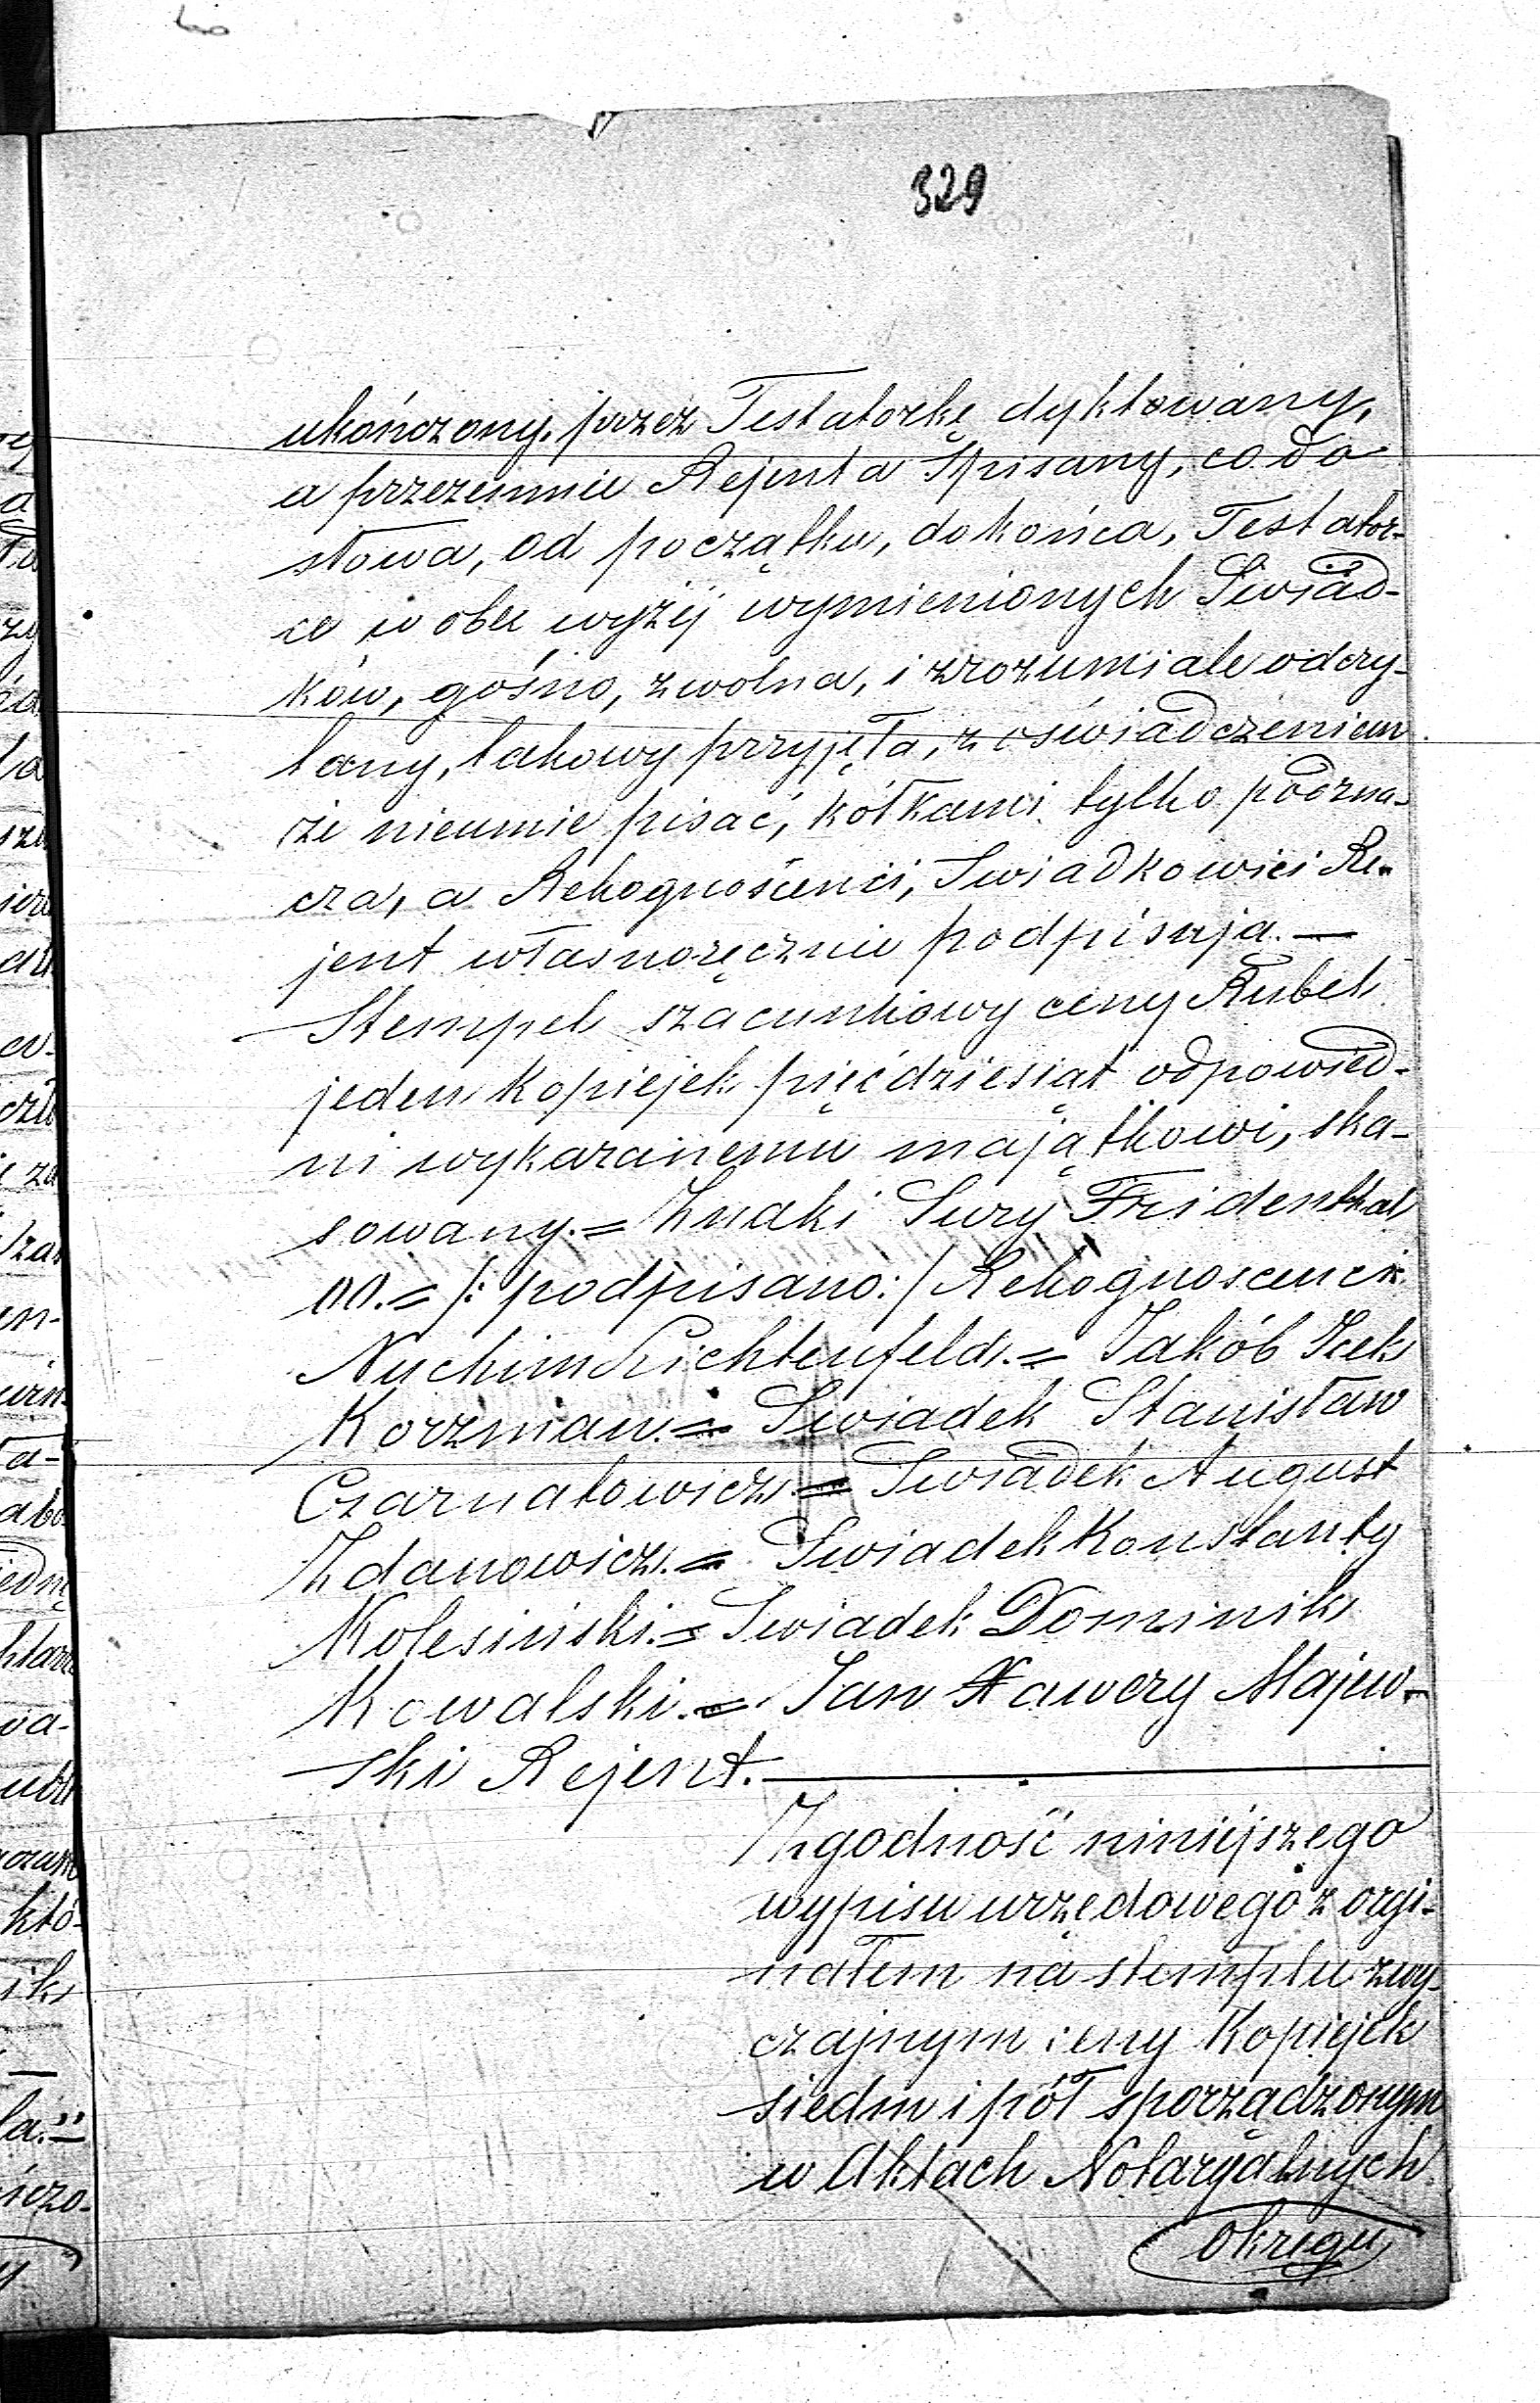 329
ukończony, przez Testatorkę dyktowany,
a przezemnie Rejenta Spisany, co do
słowa, od początku, do końca, Testator-
ce w obec wyżéj wymienionych Swiad-
ków, gośno, zwolna, i zrozumiale odczy-
tany, takowy przyjęła, z oświadczeniem
że nieumie pisać, kółkami tylko podzna-
cza, a Rekognoscenci, Swiadkowie i Re-
jent własnoręcznie podpisują. —
Stempel szacunkowy ceny Rubel
jeden Kopiejek pięćdziesiąt odpowied-
ni wykazanemu majątkowi, ska-
sowany. = Znaki Sury Fridenthal
oo. = /: podpisano :/ Rekognoscenci
Nuchim Lichtenfeld. = Jakób Icek
Korzman. = Swiadek Stanisław
Czarnatowicz. = Swiadek August
Zdanowicz. = Swiadek Konstanty
Kolesiński. = Swiadek Dominik
Kowalski. = Jan Xawery Majew-
ski Rejent.
Zgodność niniéjszego
wypisu urzędowego z orgi-
nałem na stemplu zwy-
czajnym ceny Kopiejek
siedm i pół sporządzonym
w Aktach Notaryalnych
Okręgu